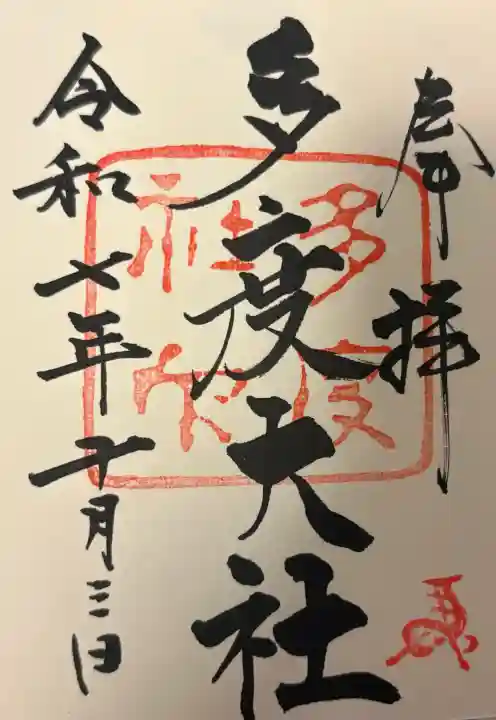 奉拝
多度大社
令和七年十月三日
多度